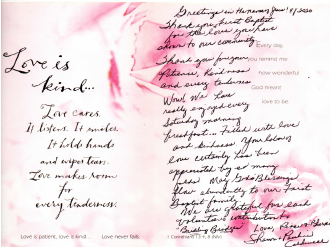 Love is
kind...
Love cares.
It listens. It smiles.
It holds hands
and wipes tears.
Love makes room
for
every tenderness.
Love is patient, love is kind.... Love never fails.
1 Corinthians 13:4, 8 (NIV)
Every day,
you remind me
how wonderful
God meant
love to be.
Greetings in
Thank you, First Baptist
for the love you have
shown to our community.
Thank you for your
patience, kindness
and every tenderness
Wow! We have
really enjoyed every
Saturday morning
breakfast... Filled with love
and kindness. Your labor of
love certainly has been
appreciated by so many
May God's Blessings
flow abundantly to our First
Baptist family.
We are grateful for each
volunteer's contribution to
Love,